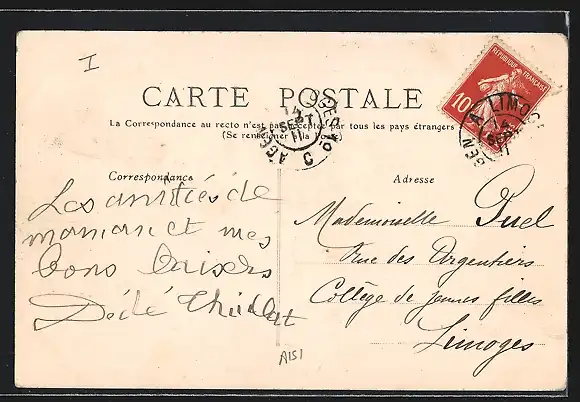 I
CARTE POSTALE
La Correspondance au recto n'est pas acceptée par tous les pays étrangers
(Se renseigner à la Poste)
RÉPUBLIQUE FRANÇAISE
10
LIMOGES
AGEN
14
SEPT
11
Correspondance
Les amitiés de
maman et mes
bons baisers
Dédé
Adresse
Mademoiselle Puel
Rue des Argentiers
Collège de jeunes filles
Limoges
A151